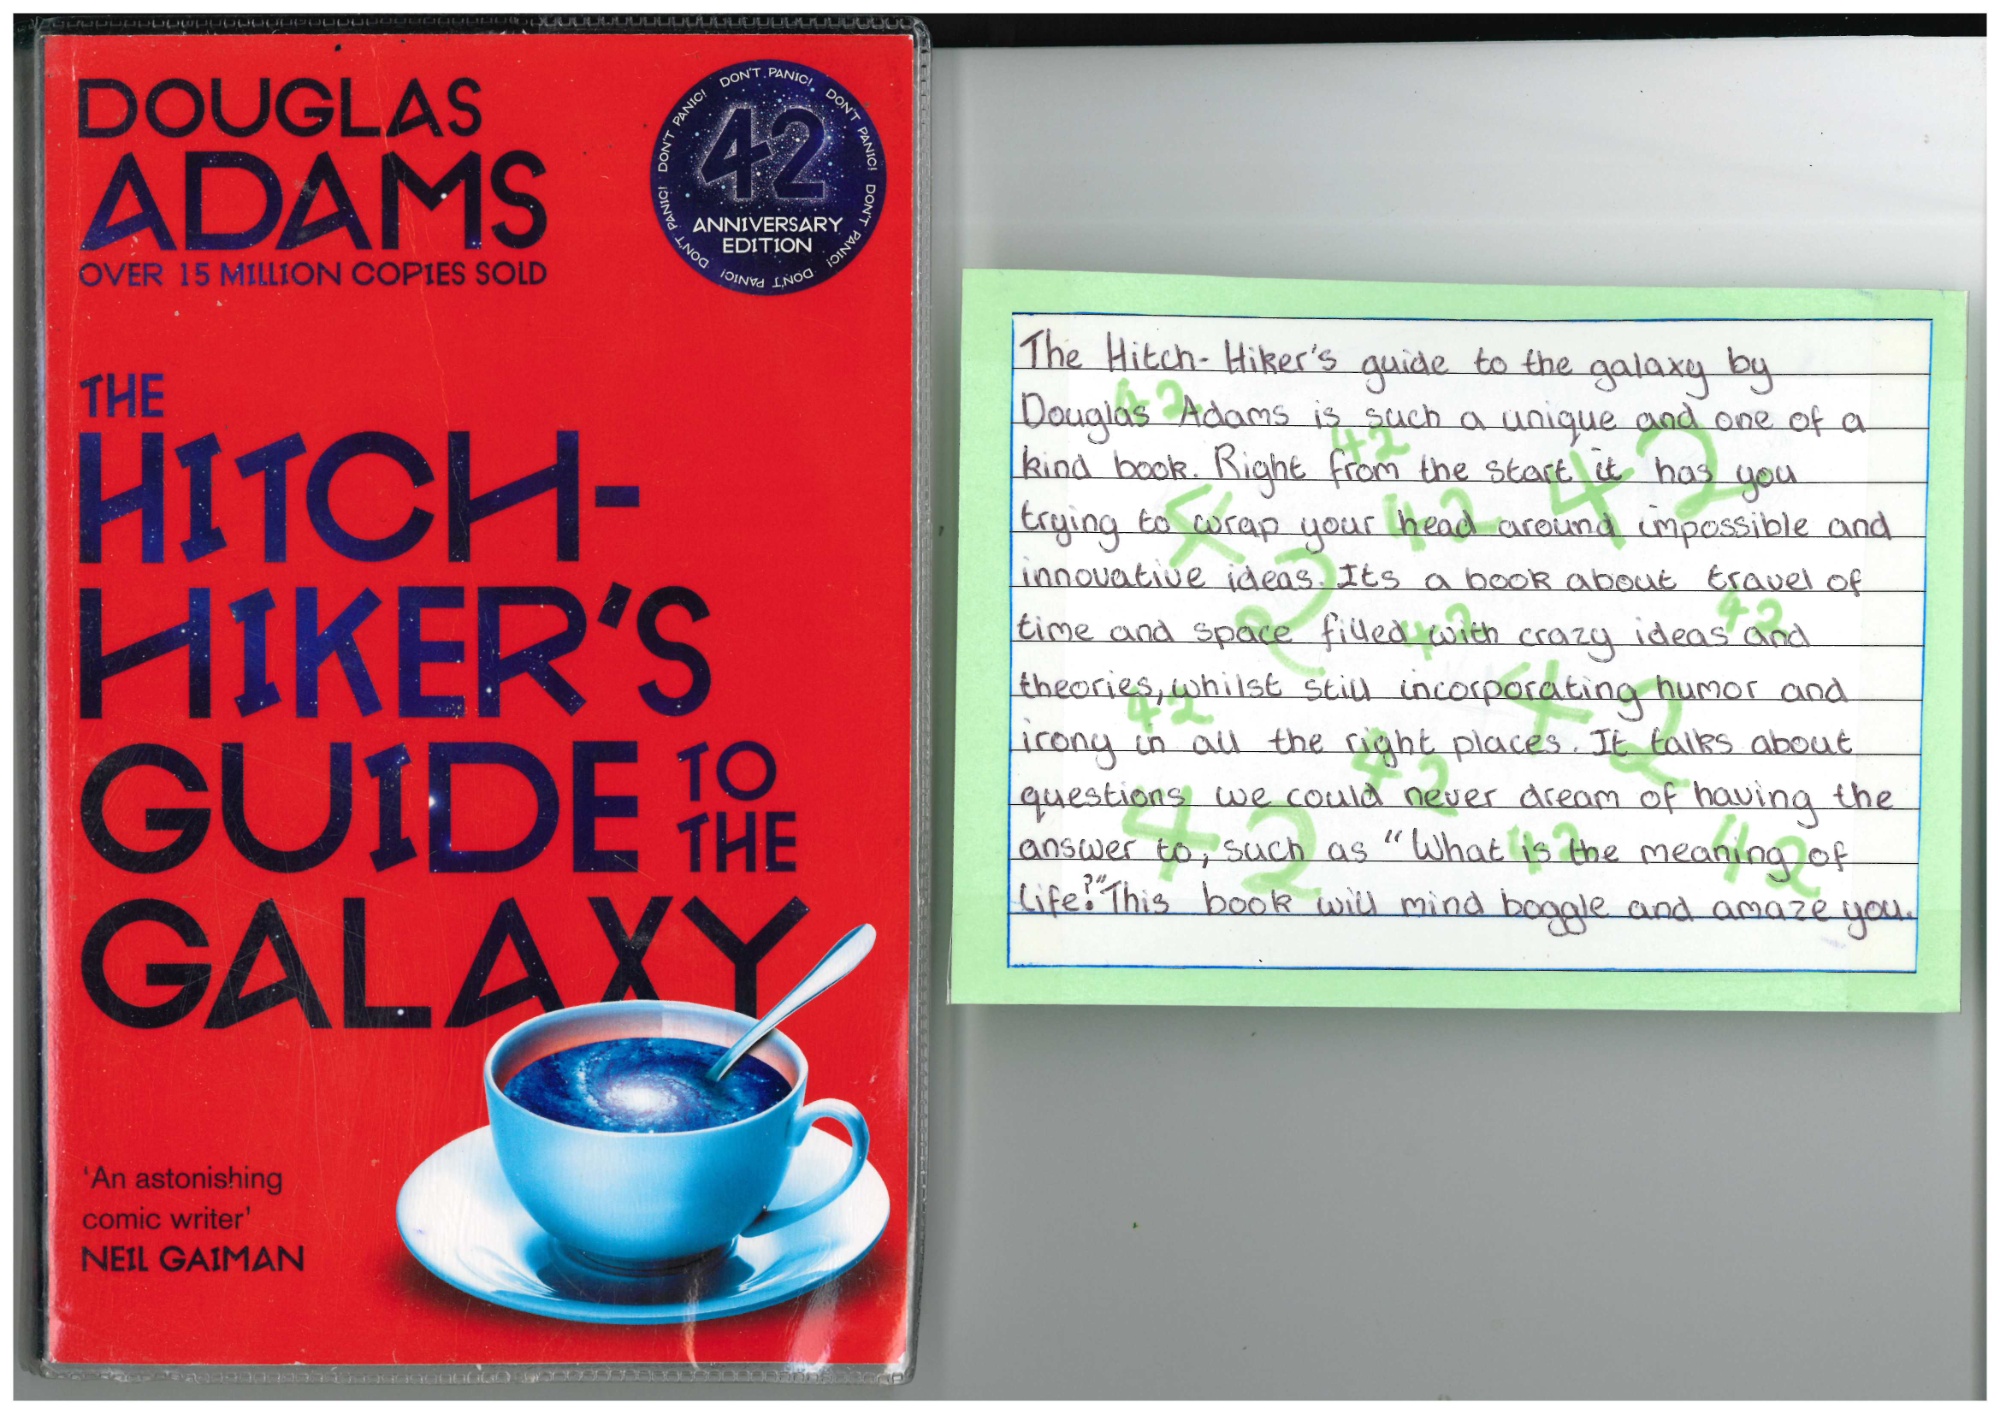 DOUGLAS
ADAMS
OVER 15 MILLION COPIES SOLD
DON'T PANIC! DON'T PANIC! DON'T PANIC! DON'T PANIC! DON'T PANIC! DON'T PANIC!
42
ANNIVERSARY
EDITION
THE
HITCH-
HIKER'S
GUIDE TO THE
GALAXY
'An astonishing
comic writer'
NEIL GAIMAN
The Hitch-Hiker's guide to the galaxy by
Douglas Adams is such a unique and one of a
kind book. Right from the start it has you
trying to wrap your head around impossible and
innovative ideas. Its a book about travel of
time and space filled with crazy ideas and
theories, whilst still incorporating humor and
irony in all the right places. It talks about
questions we could never dream of having the
answer to, such as "What is the meaning of
life?" This book will mind boggle and amaze you.
42
42
42
42
42
42
42
42
42
42
42
42
42